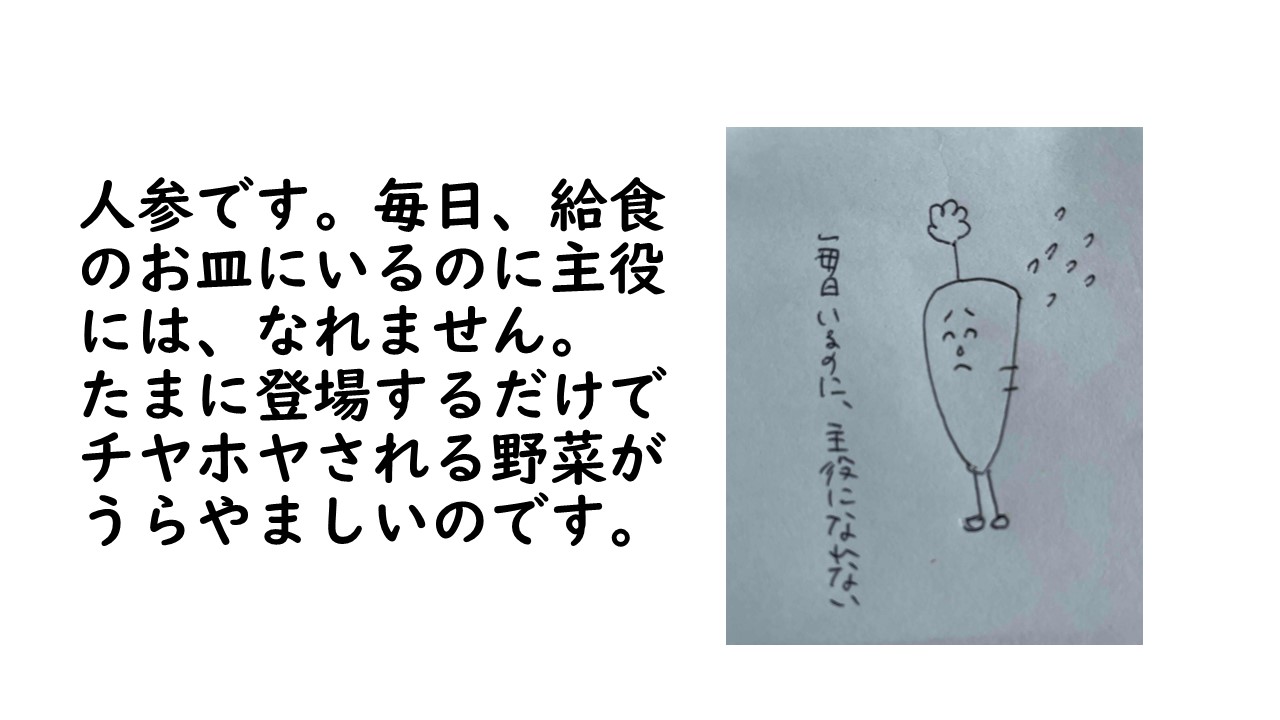 人参です。毎日、給食
のお皿にいるのに主役
には、なれません。
たまに登場するだけで
チヤホヤされる野菜が
うらやましいのです。
毎日いるのに、主役になれない